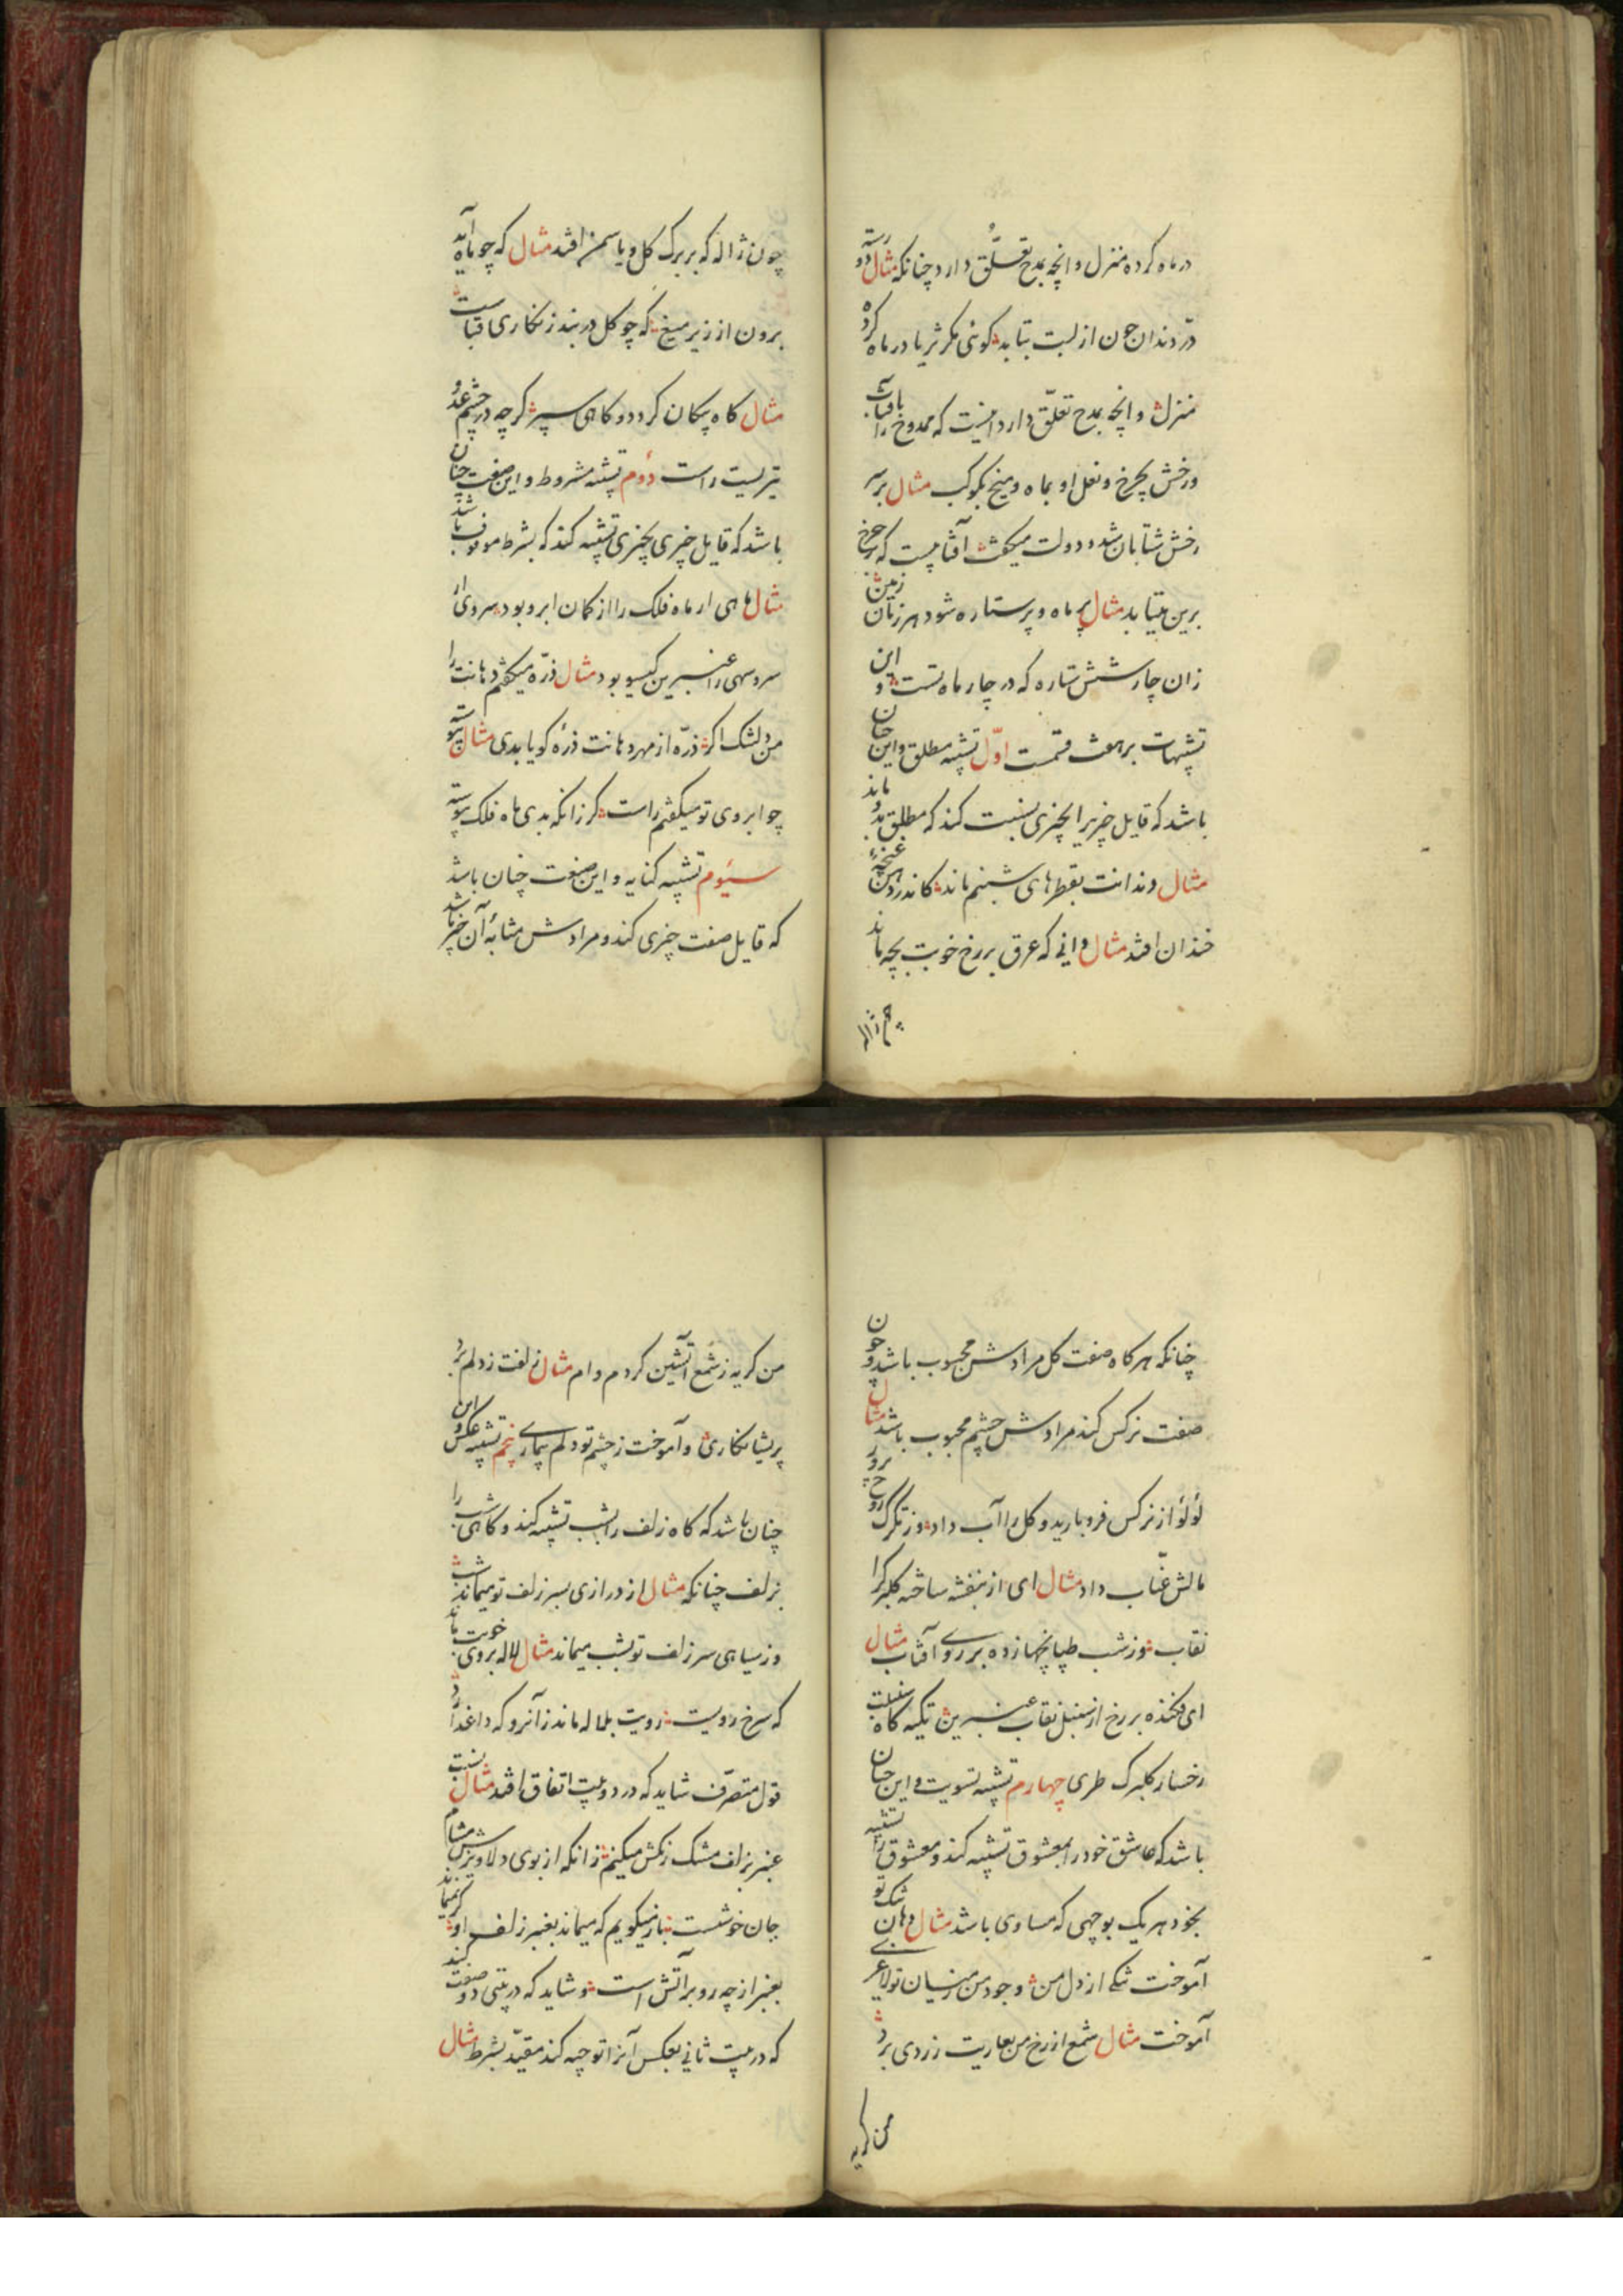 در ماه کرده منزل و انچه بمدح تعلّق دارد چنانکه مثال دو رسته
درّ دندان چون از لبت بتابد کوئی مکر ثریا در ماه کرده
منزل و انچه بمدح تعلّق دارد اینست که ممدوح را بافتاب
و رخش بچرخ و نعل او بماه و میخ بکوکب مثال بر سر
رخش شتابان شد و دولت میکفت آفتابیست که بر چرخ
برین میتابد مثال پر ماه و پر ستاره شود هر زمان زمین
زان چار شش ستاره که در چار ماه تست و این
تشبیهات بر هفت قسمت اوّل تشبیه مطلق و این چنان
باشد که قایل چیزیرا بچیزی نسبت کند که مطلق بدو ماند
مثال دندانت بقطرهای شبنم ماند کاندر دهن غنچهٔ
خندان افتد مثال دانی که عرق بر رخ خوبت بچه ماند
چون ژاله
چون ژاله که بر برک کل و یاسمن افتد مثال که چو ماه آید
برون از زیر میغ که چو کل در بند زنکاری قباست
مثال کاه پیکان کردد و کاهی سپر کرچه در چشم عدو
تیریست راست دوم تشبیه مشروط و این صفت چنان
باشد که قایل چیزی بچیزی تشبیه کند که بشرط موقوف باشد
مثال ماهی ار ماه فلک را از کمان ابرو بود سروی ار
سرو سهی را عنبرین کیسو بود مثال ذرّه میکفتم دهانت را
من دلتنک اکر ذرّه از مهر دهانت ذرهٔ کویا بدی مثال پیوسته
چو ابروی تو میکفتم راست کر زانکه بدی ماه فلک پیوسته
سیوم تشبیه کنایه و این صفت چنان باشد
که قایل صفت چیزی کند و مرادش مشابهٔ آن چیز باشد
چنانکه هر کاه صفت کل مرادش محبوب باشد و چون
صفت نرکس کند مرادش چشم محبوب باشد مثال
لؤلؤ از نرکس فرو بارید و کل را آب داد وز تکرک روح پرور
مالش عنّاب داد مثال ای از بنفشه ساخته کلبرکرا
نقاب وز شب طپانچها زده بر روی آفتاب مثال
ای فکنده بر رخ از سنبل نقاب عنبرین تکیه کاه سنبلت
رخسار کلبرک طری چهارم تشبیه تسویت و این چنان
باشد که عاشق خود را بمعشوق تشبیه کند و معشوق را تشبیه
بخود هر یک بوجهی که مساوی باشد مثال دهان تنک تو
آموخت تنکی از دل من وجود من ز میان تو لاغری
آموخت مثال شمع از رخ من بعاریت زردی برد
من کریه
من کریه ز شمع آتشین کردم وام مثال زلفت ز دلم برد
پریشانکاری و آموخت ز چشم تو دلم بیماری پنجم تشبیه عکس و این
چنان باشد که کاه زلف را بشب تشبیه کند و کاهی شب را
بزلف چنانکه مثال از درازی بسر زلف تو میماند شب
وز سیاهی سر زلف تو بشب میماند مثال لاله بروی خوبت ماند
که سرخ رویست رویت بلاله ماند زآنرو که داغ دارد
قول متصرّف شاید که در دو بیت اتفاق افتد مثال نسبت
عنبر بزلف مشک رنکش میکنم زانکه از بوی دلاویزش مشام
جان خوشست باز میکویم که میماند بعنبر زلف او کر نمیماند
بعنبر از چه رو بر آتش است و شاید که در بیتی دو صفت کند
که در بیت ثانی بعکس آنرا توجیه کند مقیّد بشرط مثال